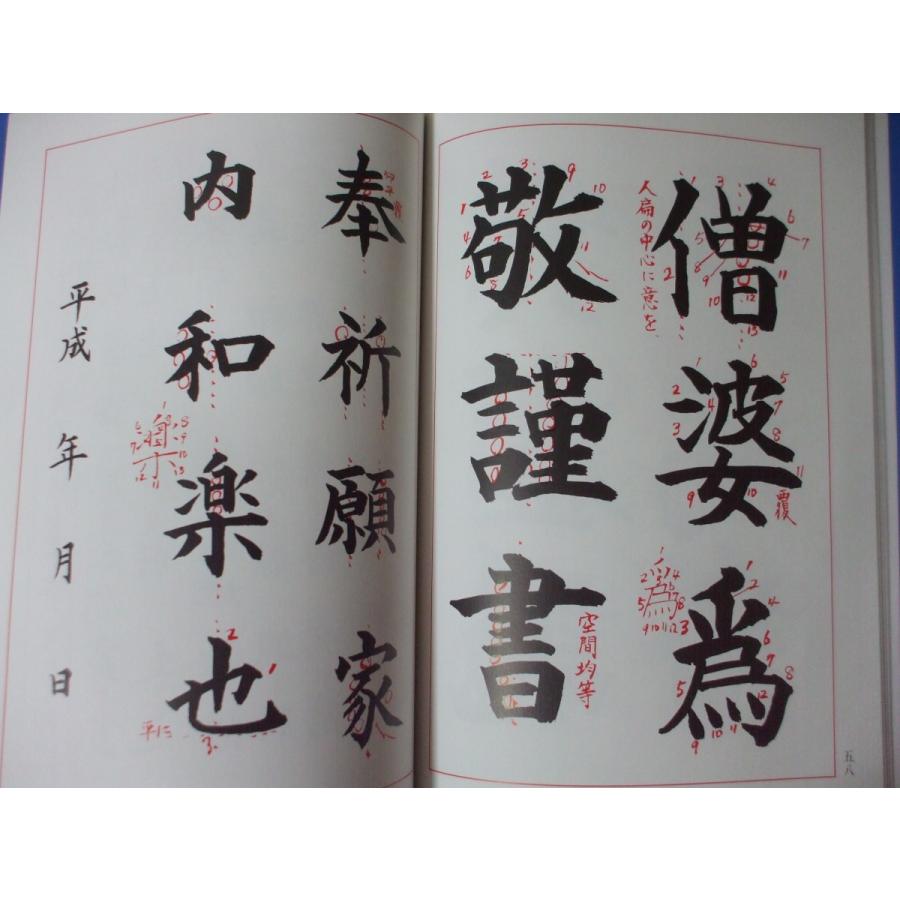 僧婆爲
敬謹書
奉祈願家
内和楽也
平成 年 月 日
人扁の中心に意を
空間均等
五八